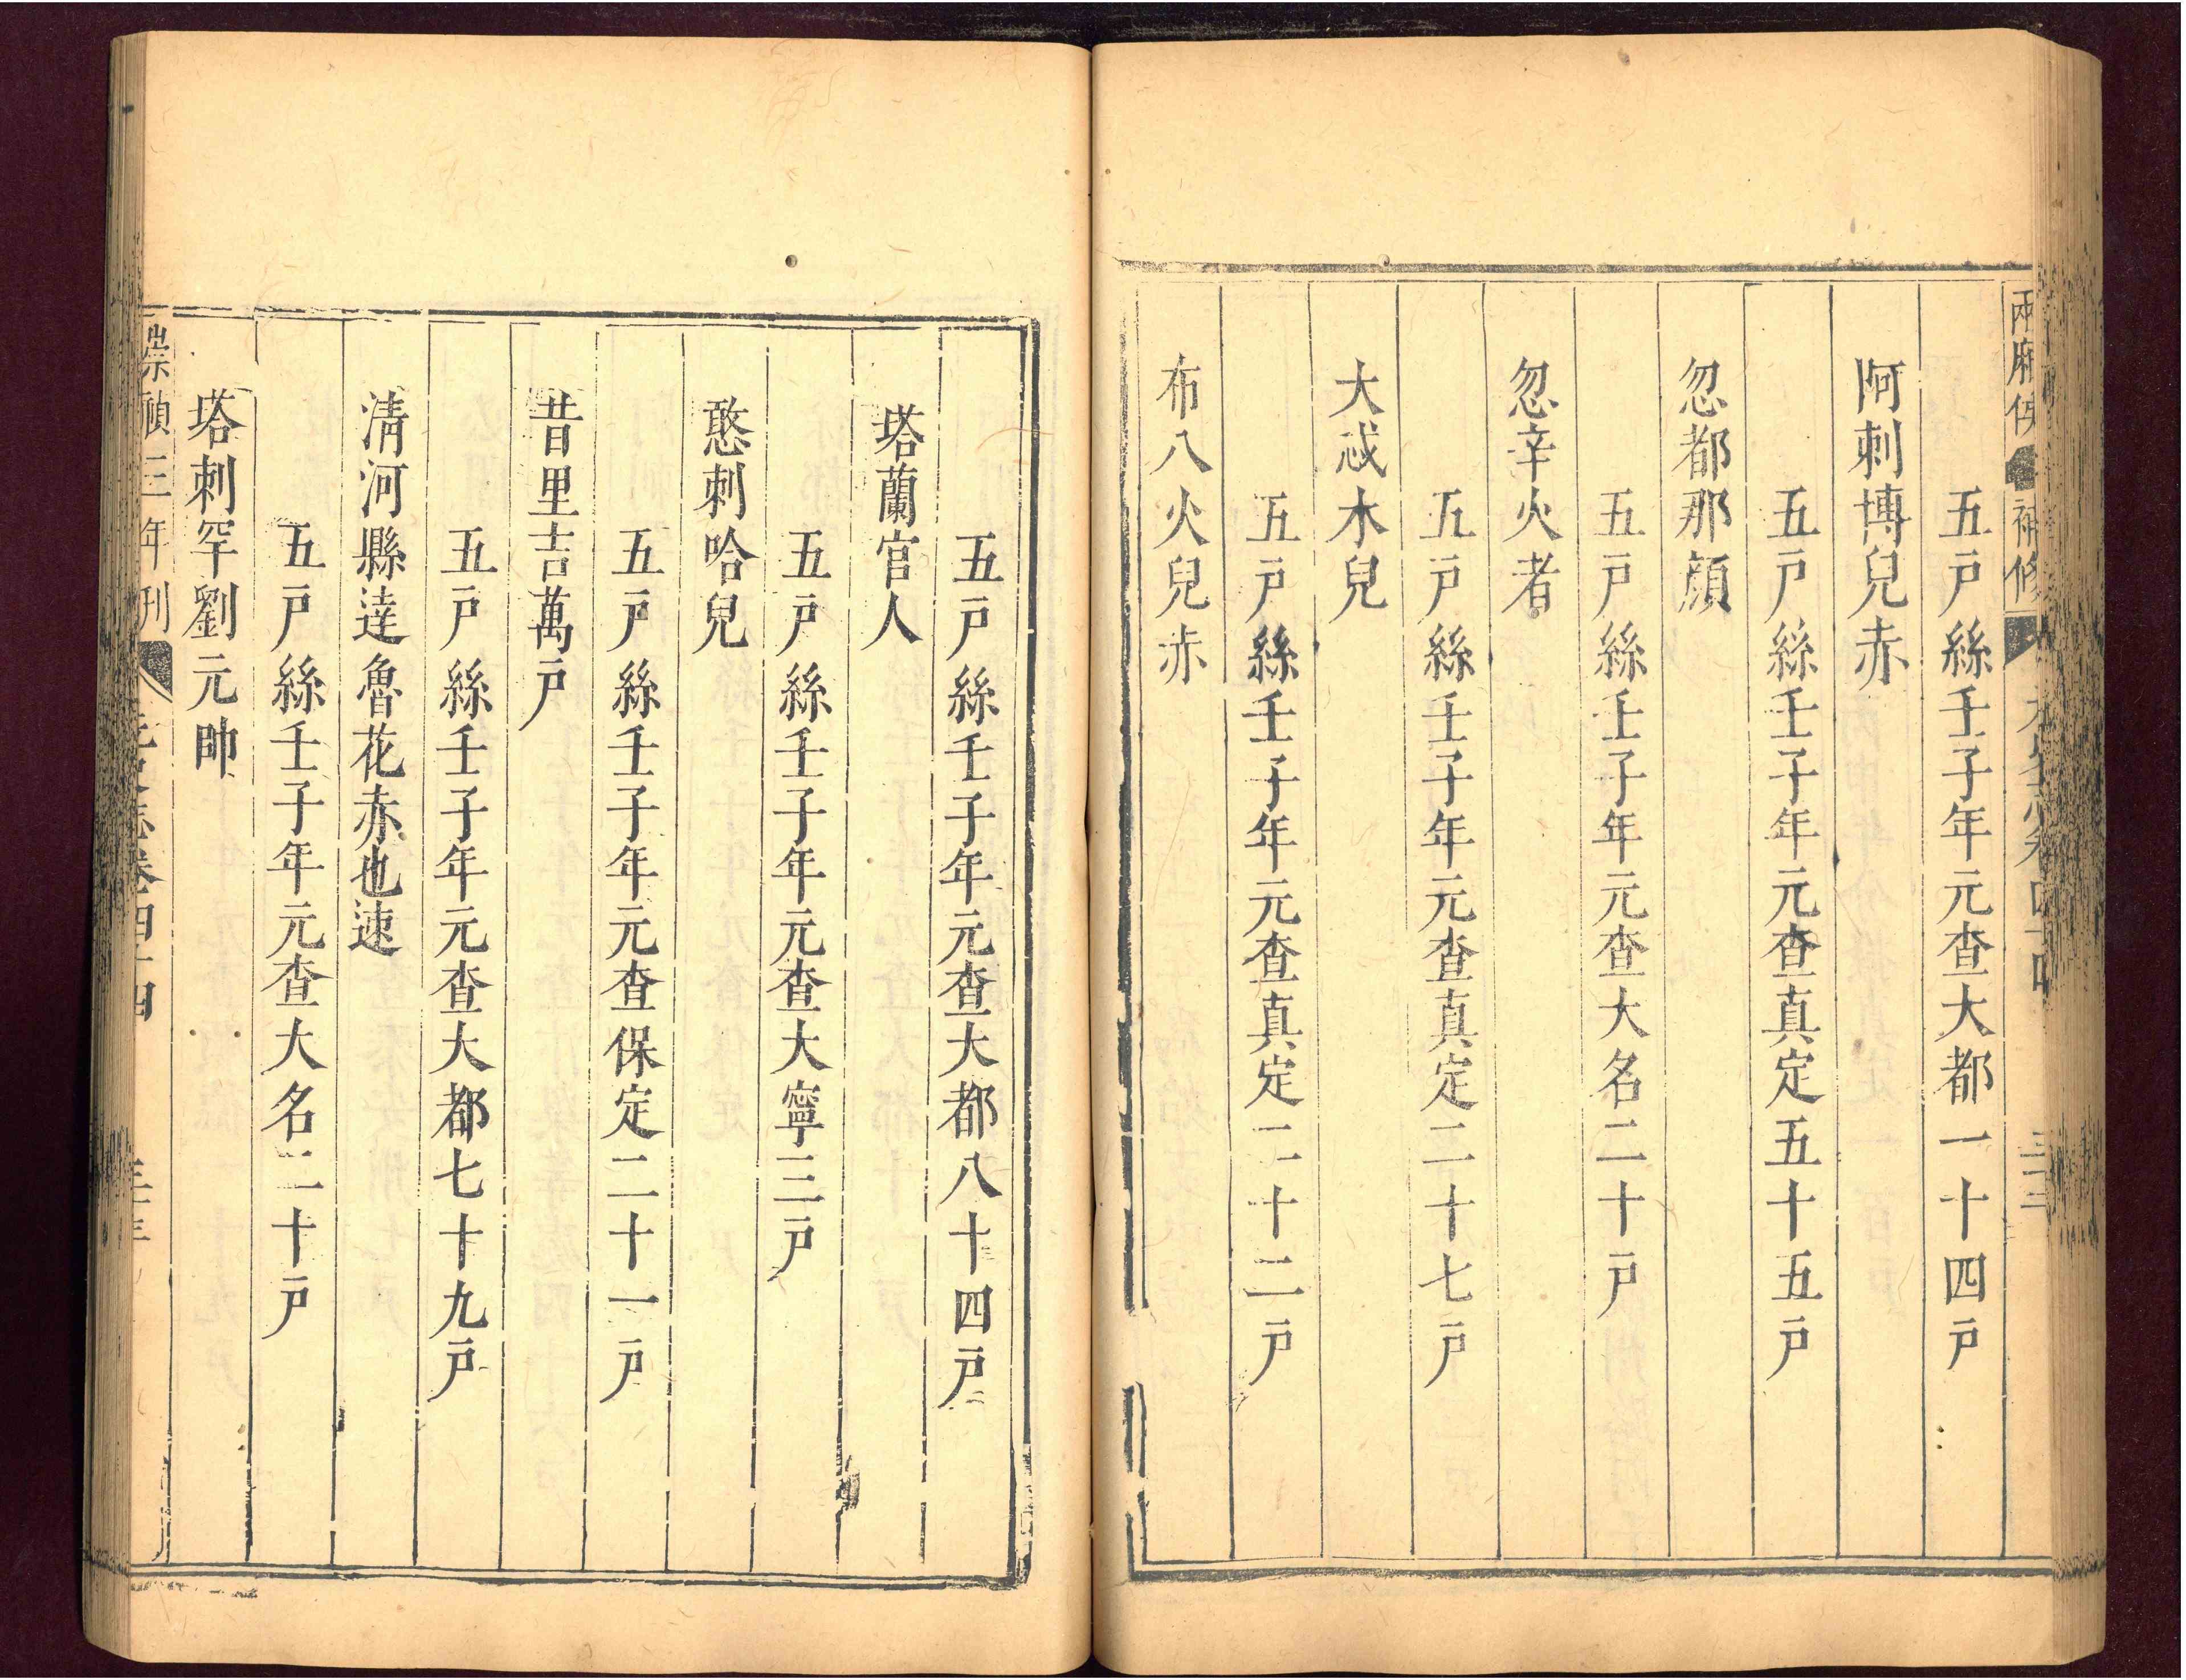 五戶絲壬子年元查大都一十四戶
阿刺博兒赤
五戶絲壬子年元查真定五十五戶
忽都那顏
五戶絲壬子年元查大名二十戶
忽辛火者
五戶絲壬子年元查真定二十七戶
大忒木兒
五戶絲壬子年元查真定二十二戶
布八火兒赤
五戶絲壬子年元查大都八十四戶
塔蘭官人
五戶絲壬子年元查大寧三戶
憨刺哈兒
五戶絲壬子年元查保定二十一戶
昔里吉萬戶
五戶絲壬子年元查大都七十九戶
清河縣達魯花赤也速
五戶絲壬子年元查大名二十戶
塔刺罕劉元帥
崇禎三年刊 元史志卷四十四